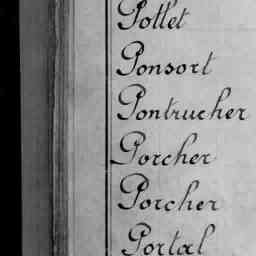 Potlet
Ponsort
Pontrucher
Porcher
Porcher
Portal